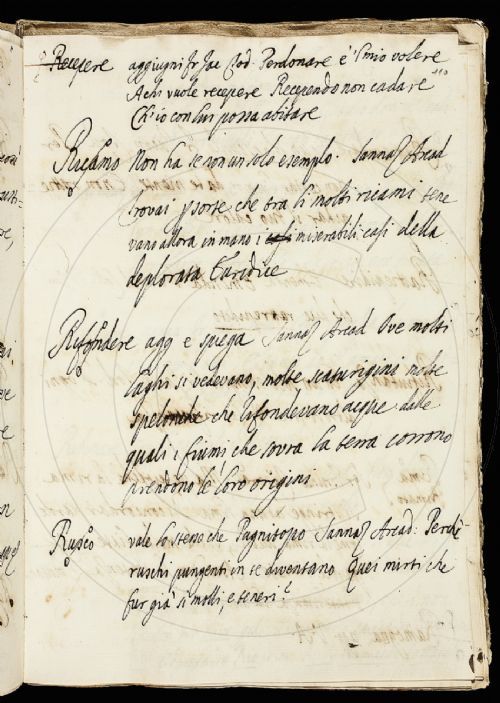 Recepere aggiugni fr Jac Tod. Perdonare è 'l mio volere
A chi vuole recepere Recependo non cadare
Ch'io con lui possa abitare
Ricamo Non ha se non un solo esempio. Sannaz Arcad
Trovai p sorte che tra li molti ricami tene
vano allora in mano i casi miserabili casi della
deplorata Euridice
Rifondere agg e spiega Sannaz Arcad Ove molti
laghi si vedevano, molte scaturigini molte
spelonche che rifondevano acque dalle
quali i fiumi che sovra la terra corrono
prendono le loro origini
Rusco vale lo stesso che Pugnitopo Sannaz Arcad: Perchè
ruschi pungenti in te diventano Quei mirti che
fur già sì molli, e teneri?